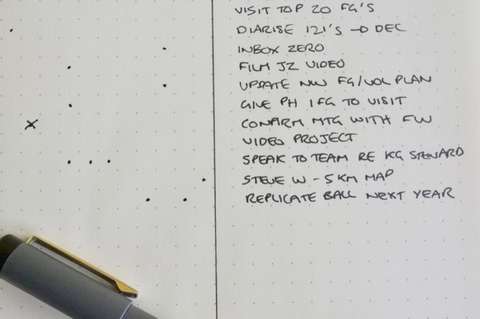 VISIT TOP 20 FG'S
DIARISE 121'S → DEC
INBOX ZERO
FILM JZ VIDEO
UPDATE NW FG/VOL PLAN
GIVE PH 1 FG TO VISIT
CONFIRM MTG WITH FW
VIDEO PROJECT
SPEAK TO TEAM RE KG STENARD
STEVE W - 5KM MAP
REPLICATE BALL NEXT YEAR